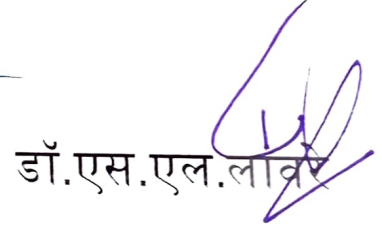 डॉ.एस.एल.लावरे